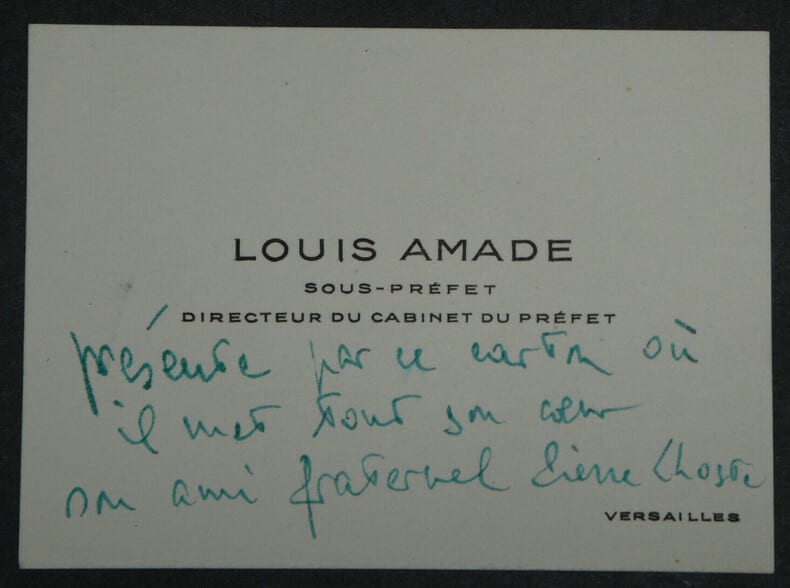 LOUIS AMADE
SOUS-PRÉFET
DIRECTEUR DU CABINET DU PRÉFET
présente par ce carton où
il met tout son cœur
son ami fraternel Pierre Lhoste
VERSAILLES